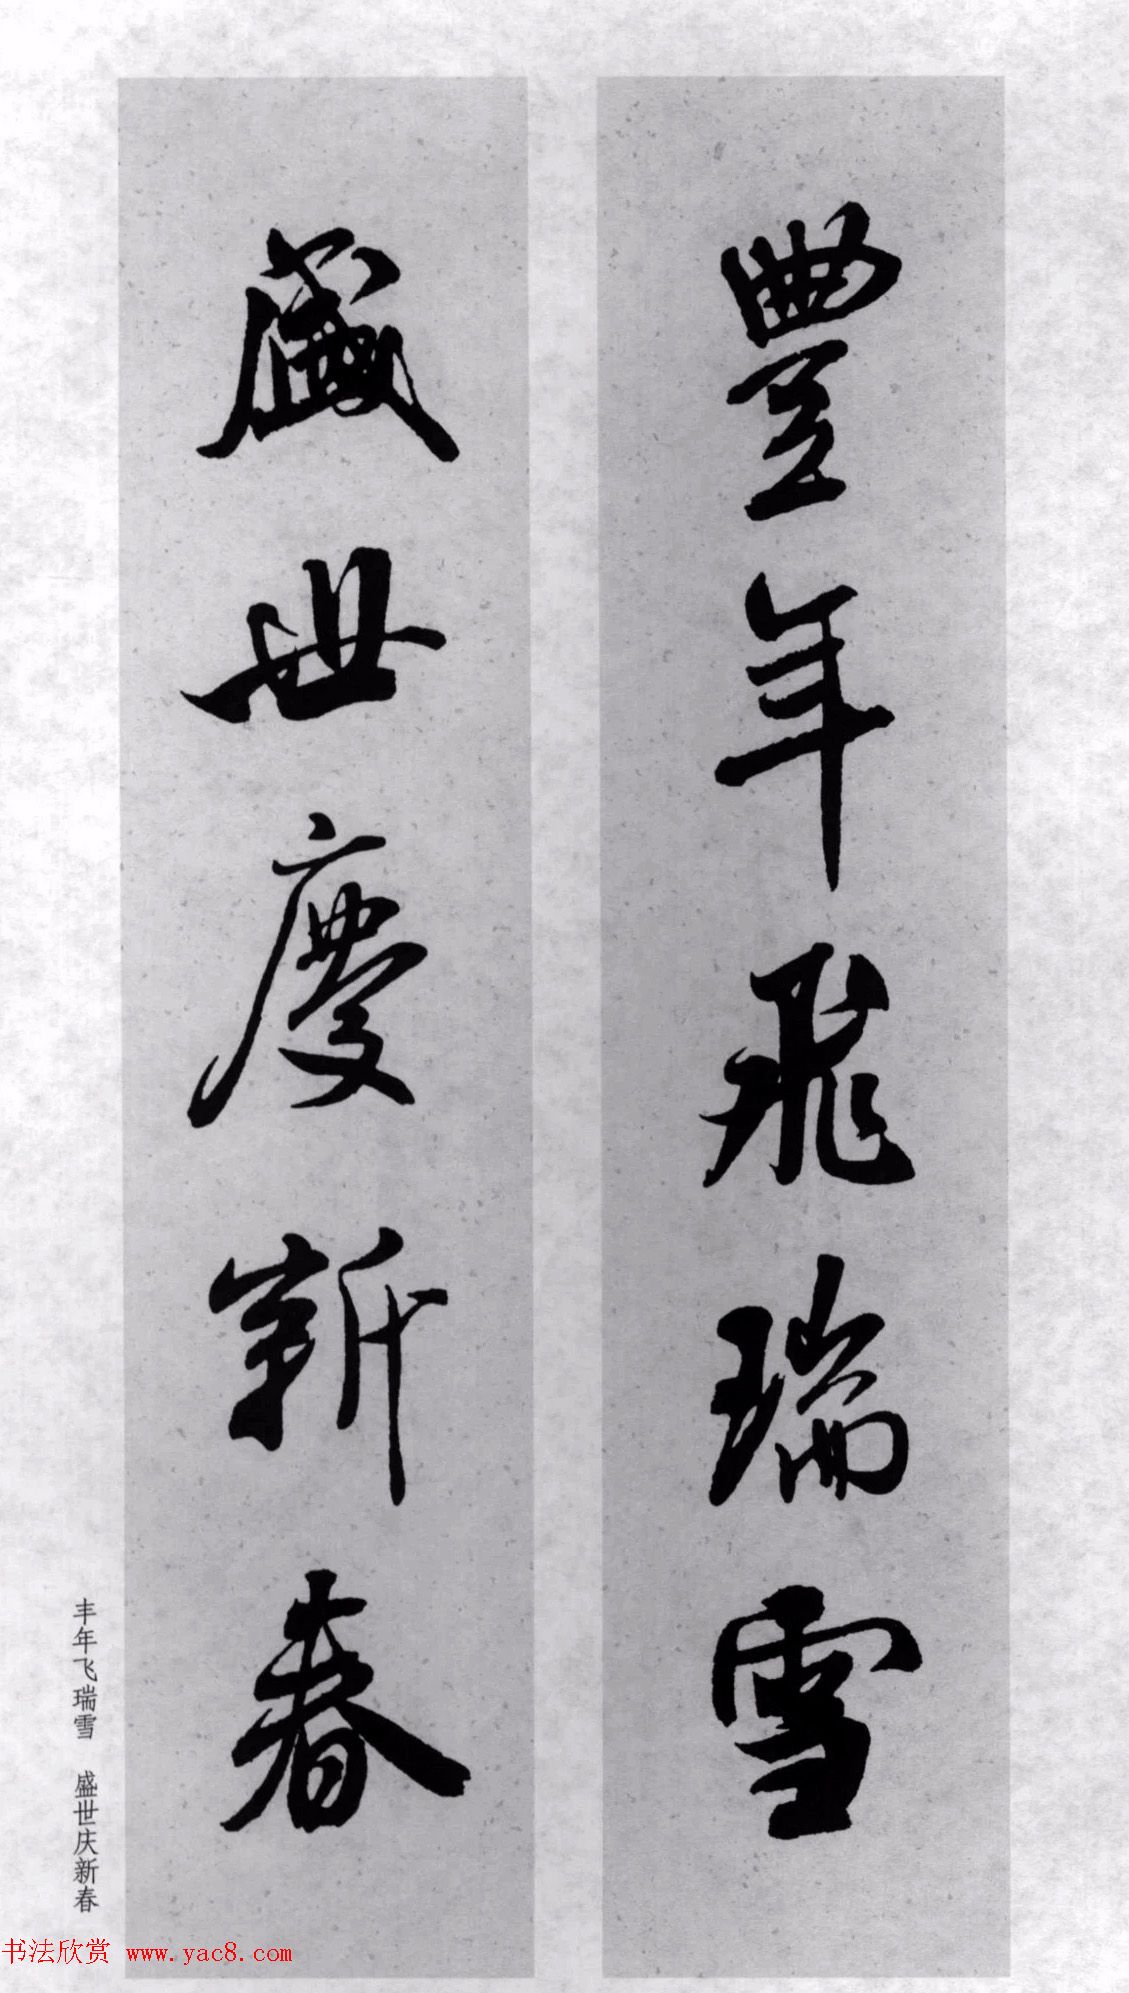 豐年飛瑞雪
盛世慶新春
丰年飞瑞雪 盛世庆新春
书法欣赏 www.yac8.com